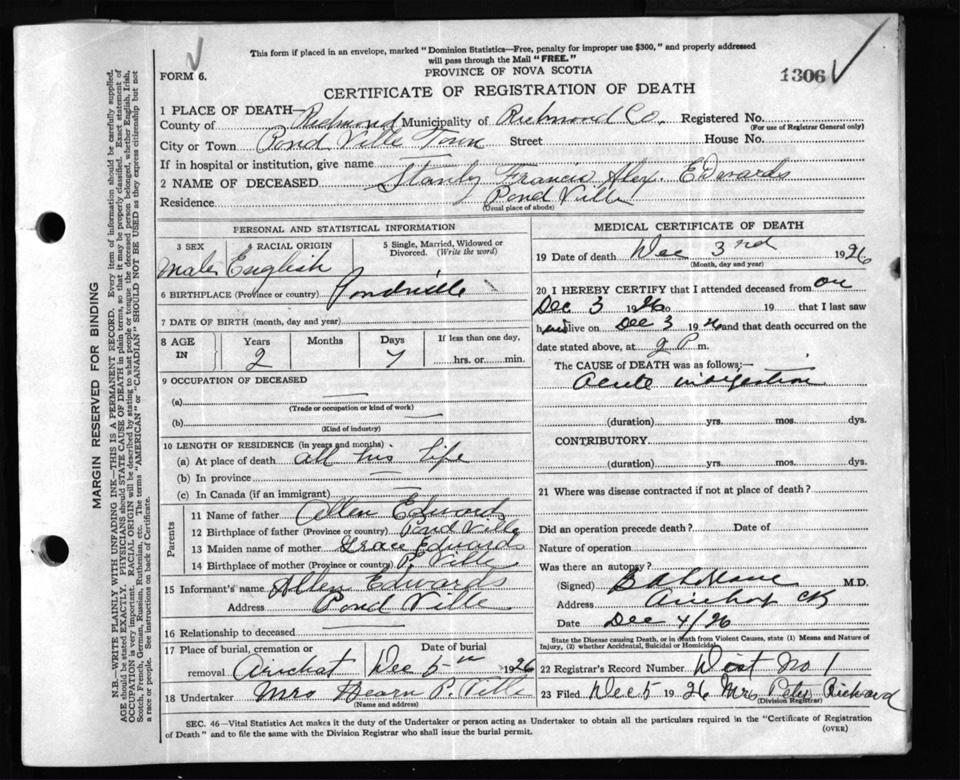 This form if placed in an envelope, marked "Dominion Statistics—Free, penalty for improper use $300," and properly addressed
will pass through the Mail "FREE."
FORM 6.
PROVINCE OF NOVA SCOTIA
1306
CERTIFICATE OF REGISTRATION OF DEATH
1 PLACE OF DEATH—
County of Richmond Municipality of Richmond Co. Registered No.
(For use of Registrar General only)
City or Town Pond Ville Town Street House No.
If in hospital or institution, give name
2 NAME OF DECEASED Stanly Francis Alex. Edwards
Residence Pond Ville
(Usual place of abode)
PERSONAL AND STATISTICAL INFORMATION
3 SEX 4 RACIAL ORIGIN 5 Single, Married, Widowed or Divorced. (Write the word)
Male English
6 BIRTHPLACE (Province or country) Pondville
7 DATE OF BIRTH (month, day and year)
8 AGE IN Years Months Days If less than one day,
2 7 hrs. or min.
9 OCCUPATION OF DECEASED
(a)
(Trade or occupation or kind of work)
(b)
(Kind of industry)
10 LENGTH OF RESIDENCE (in years and months)
(a) At place of death all his life
(b) In province
(c) In Canada (if an immigrant)
Parents
11 Name of father Allen Edwards
12 Birthplace of father (Province or country) Pond Ville
13 Maiden name of mother Grace Edwards
14 Birthplace of mother (Province or country) P. Ville
15 Informant's name Allen Edwards
Address Pond Ville
16 Relationship to deceased
17 Place of burial, cremation or removal Arichat Date of burial Dec 5th 1926
18 Undertaker Mrs Hearn P. Ville
(Name and address)
MEDICAL CERTIFICATE OF DEATH
19 Date of death Dec 3rd 1926
(Month, day and year)
20 I HEREBY CERTIFY that I attended deceased from on
Dec 3 1926 19 that I last saw
him alive on Dec 3 1926 and that death occurred on the
date stated above, at 2 P. m.
The CAUSE OF DEATH was as follows:—
Acute indigestion
(duration) yrs. mos. dys.
CONTRIBUTORY
(duration) yrs. mos. dys.
21 Where was disease contracted if not at place of death?
Did an operation precede death? Date of
Nature of operation
Was there an autopsy?
(Signed) M.D.
Address
Date Dec 4/26
State the Disease causing Death, or in death from Violent Causes, state (1) Means and Nature of
Injury, (2) whether Accidental, Suicidal or Homicidal.
22 Registrar's Record Number Dist No 1
23 Filed Dec 5 1926 Mrs Peter Richard
(Division Registrar)
SEC. 46—Vital Statistics Act makes it the duty of the Undertaker or person acting as Undertaker to obtain all the particulars required in the "Certificate of Registration
of Death" and to file the same with the Division Registrar who shall issue the burial permit.
(OVER)
MARGIN RESERVED FOR BINDING
N.B.—WRITE PLAINLY, WITH UNFADING INK—THIS IS A PERMANENT RECORD. Every item of information should be carefully supplied.
AGE should be stated EXACTLY. PHYSICIANS should STATE CAUSE OF DEATH in plain terms, so that it may be properly classified. Exact statement of
OCCUPATION is very important. RACIAL ORIGIN will be described by stating to what people or tongue the deceased person belonged, whether English, Irish,
Scotch, French, German, Russian, Ruthenian, etc. The terms "AMERICAN" or "CANADIAN" SHOULD NOT BE USED as they express citizenship but not
a race or people. See instructions on back of Certificate.